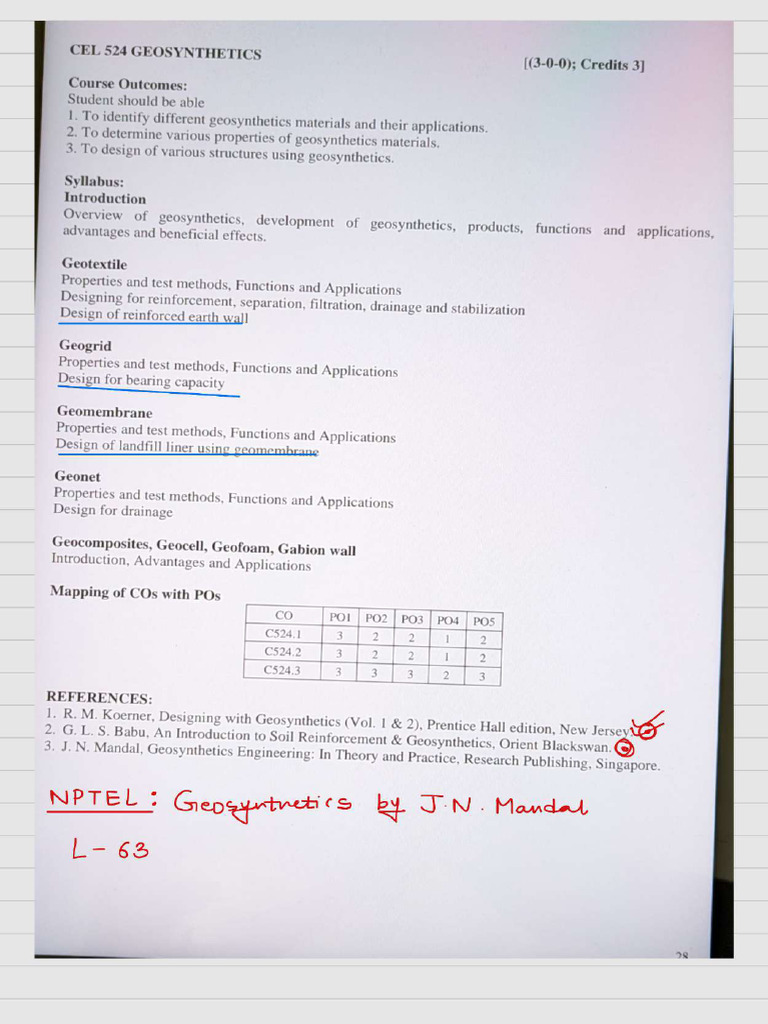 CEL 524 GEOSYNTHETICS [(3-0-0); Credits 3]
Course Outcomes:
Student should be able
1. To identify different geosynthetics materials and their applications.
2. To determine various properties of geosynthetics materials.
3. To design of various structures using geosynthetics.
Syllabus:
Introduction
Overview of geosynthetics, development of geosynthetics, products, functions and applications,
advantages and beneficial effects.
Geotextile
Properties and test methods, Functions and Applications
Designing for reinforcement, separation, filtration, drainage and stabilization
Design of reinforced earth wall
Geogrid
Properties and test methods, Functions and Applications
Design for bearing capacity
Geomembrane
Properties and test methods, Functions and Applications
Design of landfill liner using geomembrane
Geonet
Properties and test methods, Functions and Applications
Design for drainage
Geocomposites, Geocell, Geofoam, Gabion wall
Introduction, Advantages and Applications
Mapping of COs with POs
CO PO1 PO2 PO3 PO4 PO5
C524.1 3 2 2 1 2
C524.2 3 2 2 1 2
C524.3 3 3 3 2 3
REFERENCES:
1. R. M. Koerner, Designing with Geosynthetics (Vol. 1 & 2), Prentice Hall edition, New Jersey.
2. G. L. S. Babu, An Introduction to Soil Reinforcement & Geosynthetics, Orient Blackswan.
3. J. N. Mandal, Geosynthetics Engineering: In Theory and Practice, Research Publishing, Singapore.
NPTEL: Geosyntnetics by J.N. Mandal
L - 63
28